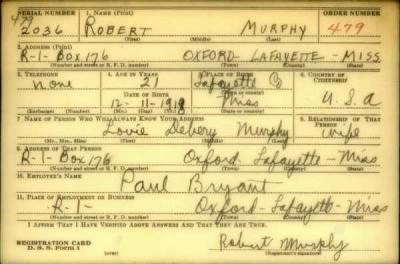 SERIAL NUMBER 1. NAME (Print) ORDER NUMBER
479
2036 ROBERT MURPHY 479
(First) (Middle) (Last)
2. ADDRESS (Print)
R-1-Box 176 OXFORD-LAFAYETTE-MISS
(Number and street or R. F. D. number) (Town) (County) (State)
3. TELEPHONE 4. AGE IN YEARS 5. PLACE OF BIRTH 6. COUNTRY OF CITIZENSHIP
none 21 Lafayette Co
DATE OF BIRTH Miss U.S.A
12-11-1918
(Exchange) (Number) (Mo.) (Day) (Yr.) (State or country)
7. NAME OF PERSON WHO WILL ALWAYS KNOW YOUR ADDRESS 8. RELATIONSHIP OF THAT PERSON
Lovie Murphy wife
(Mr., Mrs., Miss) (First) (Middle) (Last)
9. ADDRESS OF THAT PERSON
R-1-Box 176 Oxford-Lafayette-Miss
(Number and street or R. F. D. number) (Town) (County) (State)
10. EMPLOYER'S NAME
Paul Bryant
11. PLACE OF EMPLOYMENT OR BUSINESS
R-1- Oxford-Lafayette-Miss
(Number and street or R. F. D. number) (Town) (County) (State)
I AFFIRM THAT I HAVE VERIFIED ABOVE ANSWERS AND THAT THEY ARE TRUE.
REGISTRATION CARD
D. S. S. Form 1
Robert Murphy
(Registrant's signature)